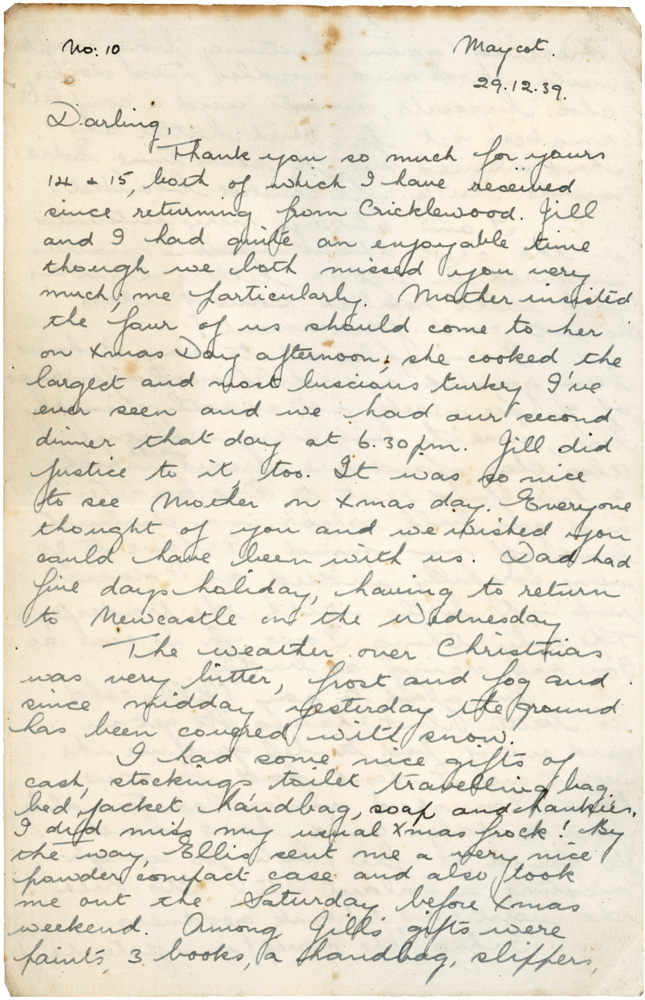 No: 10
Maycot.
29.12.39.
Darling,
Thank you so much for yours
14 & 15, both of which I have received
since returning from Cricklewood. Jill
and I had quite an enjoyable time
though we both missed you very
much; me particularly. Mother insisted
the four of us should come to her
on Xmas Day afternoon; she cooked the
largest and most luscious turkey I've
ever seen and we had our second
dinner that day at 6.30pm. Jill did
justice to it, too. It was so nice
to see Mother on Xmas day. Everyone
thought of you and we wished you
could have been with us. Dad had
five days holiday, having to return
to Newcastle on the Wednesday
The weather over Christmas
was very bitter, frost and fog and
since midday yesterday the ground
has been covered with snow.
I had some nice gifts of
cash, stockings toilet travelling bag
bed jacket handbag, soap and hankies.
I did miss my usual Xmas frock! By
the way, Ellis sent me a very nice
powder compact case and also took
me out the Saturday before Xmas
weekend. Among Jill's gifts were
paints, 3 books, a handbag, slippers,